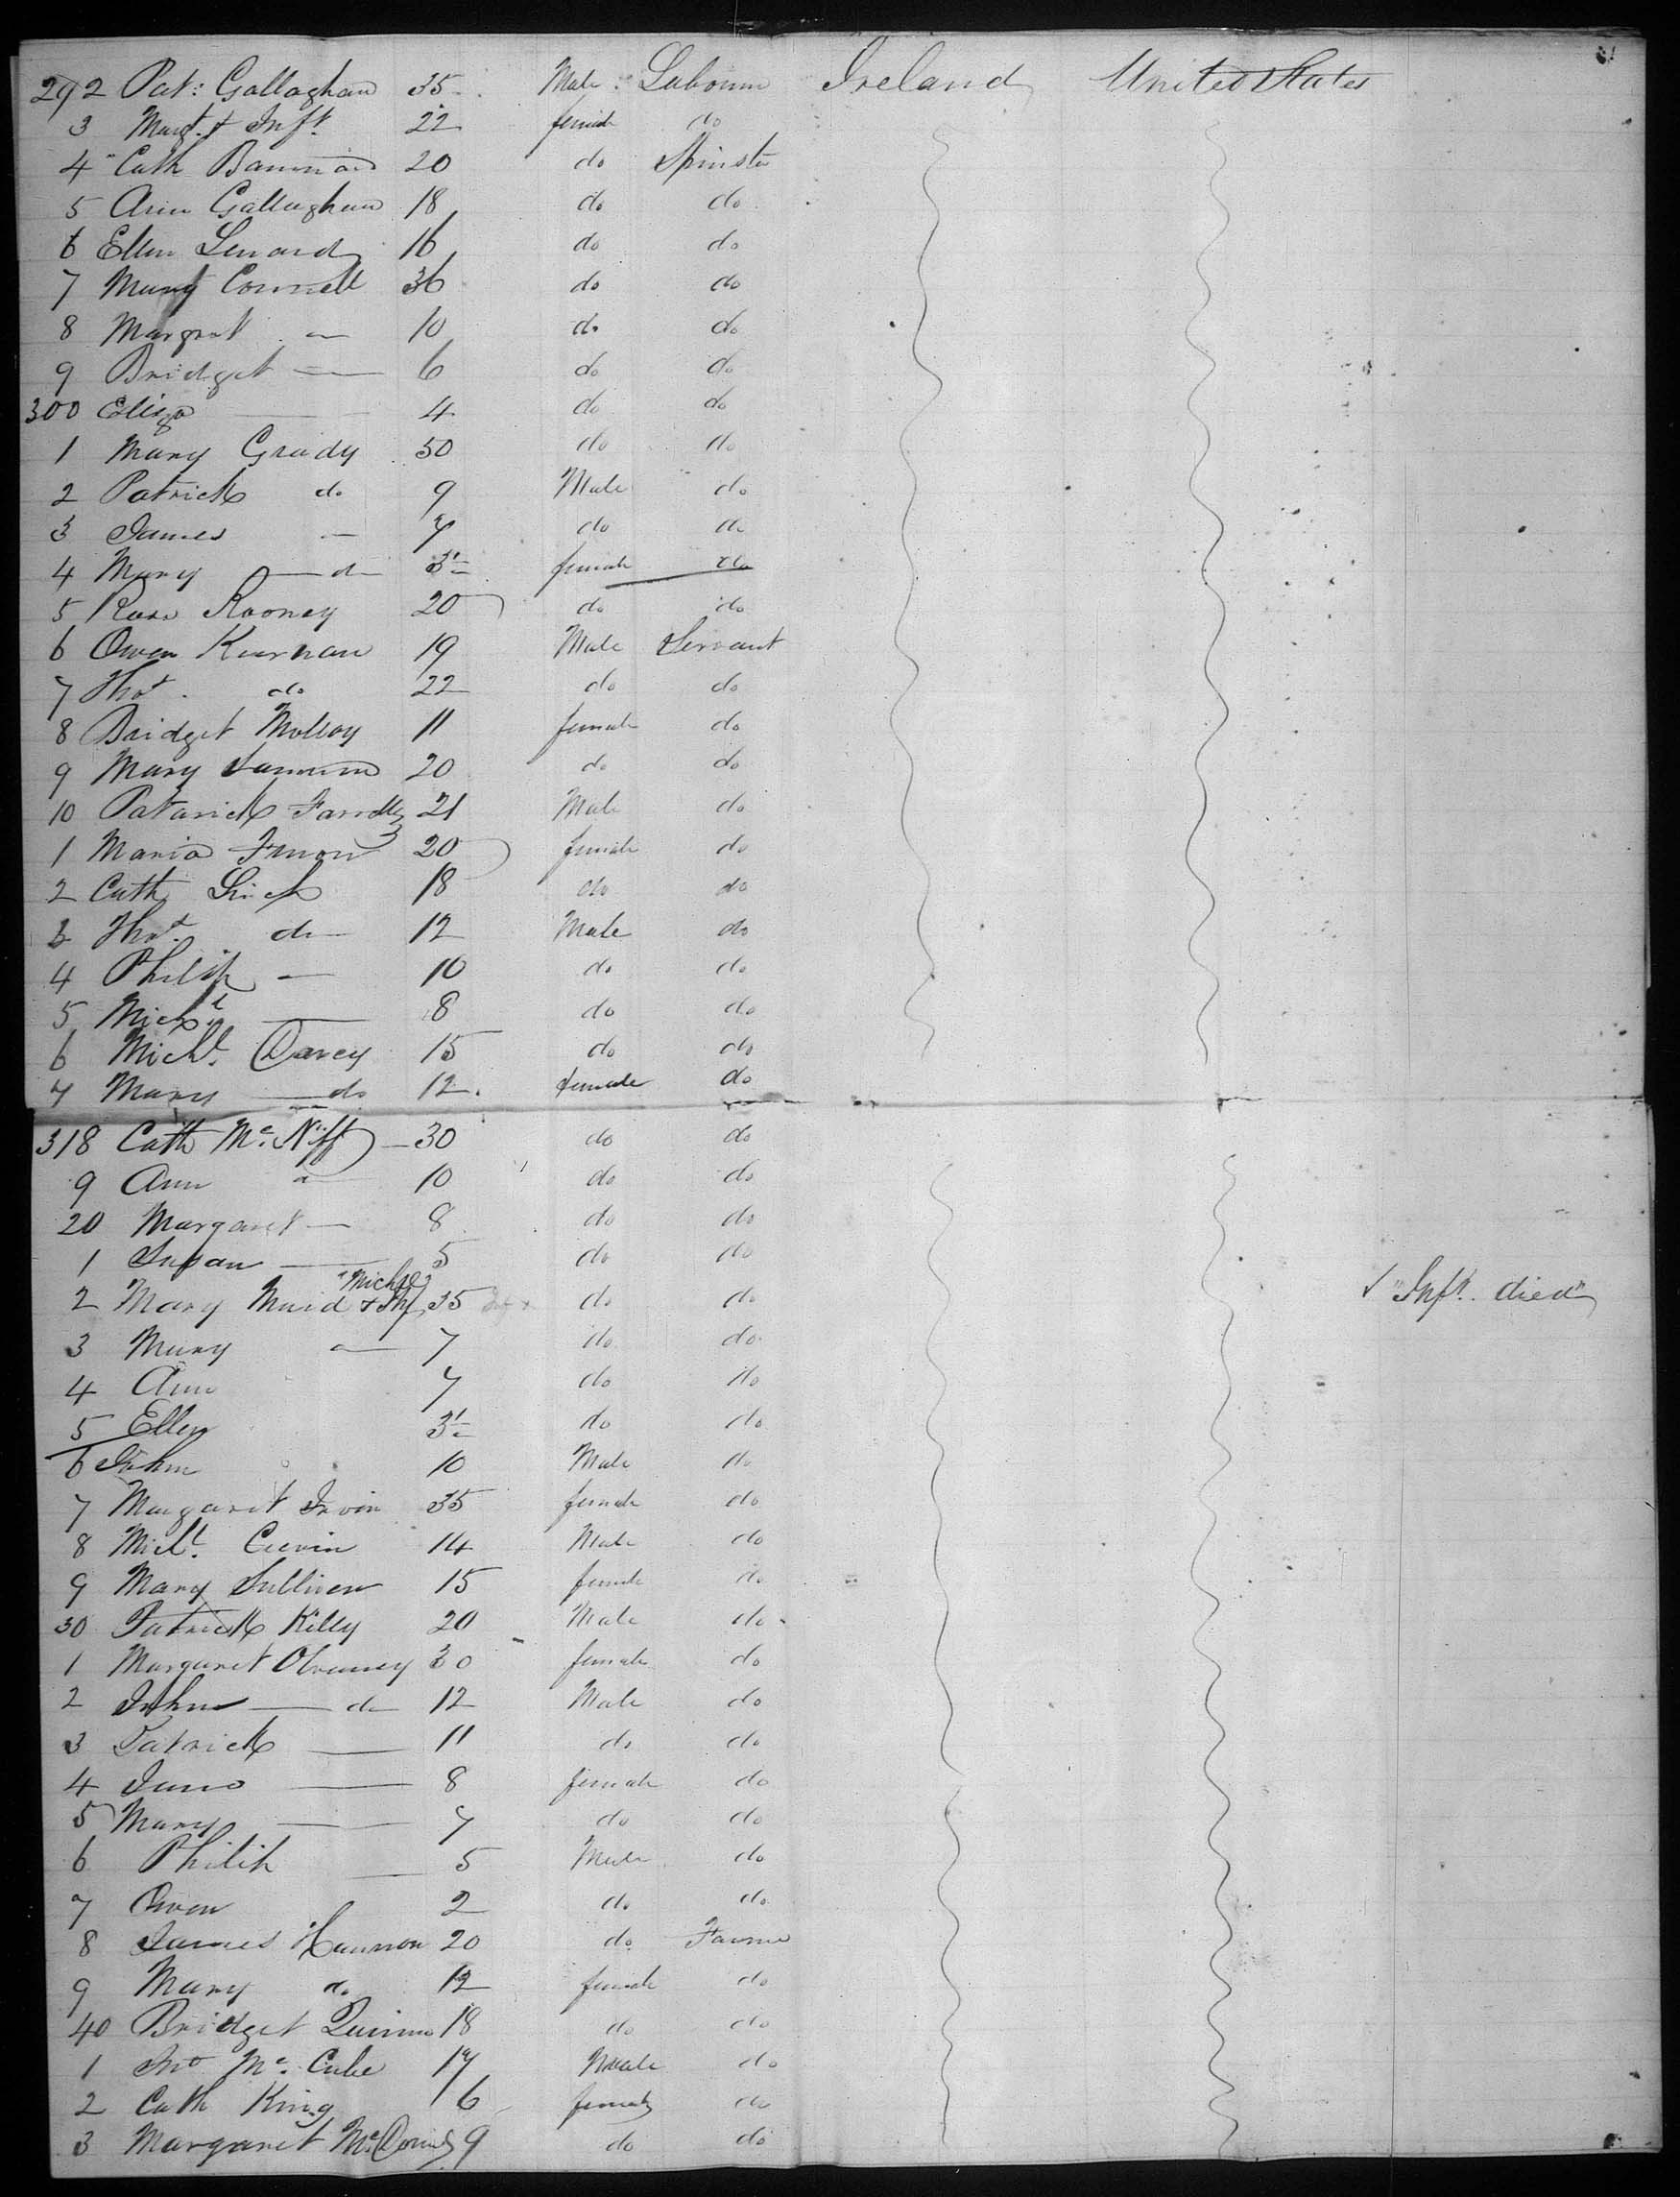 292 Pat: Gallaghan 35 Male Labourer Ireland United States
3 Margt. & Inft. 22 female do
4 " Cath 20 do Spinster
5 Ann Gallaghan 18 do do
6 Ellen Lenard 16 do do
7 Mary Connell 36 do do
8 Margret — 10 do do
9 Bridget — 6 do do
300 Eliza — 4 do do
1 Mary Grady 50 do do
2 Patrick do 9 Male do
3 James — 7 do do
4 Mary — do 3 female do
5 Rose Rooney 20 do do
6 Owen Kiernan 19 Male Servant
7 Thos. do 22 do do
8 Bridget Molloy 11 female do
9 Mary 20 do do
10 Patarick Farrelly 21 Male do
1 Maria 20 female do
2 Cath 18 do do
3 Thos. do 12 Male do
4 Philip — 10 do do
5 Michl. — 8 do do
6 Michl. Darcy 15 do do
7 Mary — do 12. female do
318 Cath Mc.Niff — 30 do do
9 Ann 10 do do
20 Margaret — 8 do do
1 Susan — 5 do do
"Michl"
2 Mary & Inf 35 do do √ "Inft. died"
3 Mary — 7 do do
4 Ann 7 do do
5 Ellen 3 do do
6 John 10 Male do
7 Margaret Irvin 35 female do
8 Michl. 14 Male do
9 Mary Sulliven 15 female do
30 Patrick Killy 20 Male do
1 Margaret 30 female do
2 John — do 12 Male do
3 Patrick — 11 do do
4 Jane — 8 female do
5 Mary — 7 do do
6 Philip — 5 Male do
7 Owen 2 do do
8 James Hannon 20 do Farmer
9 Mary do 12 female do
40 Bridget Quinn 18 do do
1 Jno Mc. Cabe 17 Male do
2 Cath King 16 female do
3 Margaret 9 do do